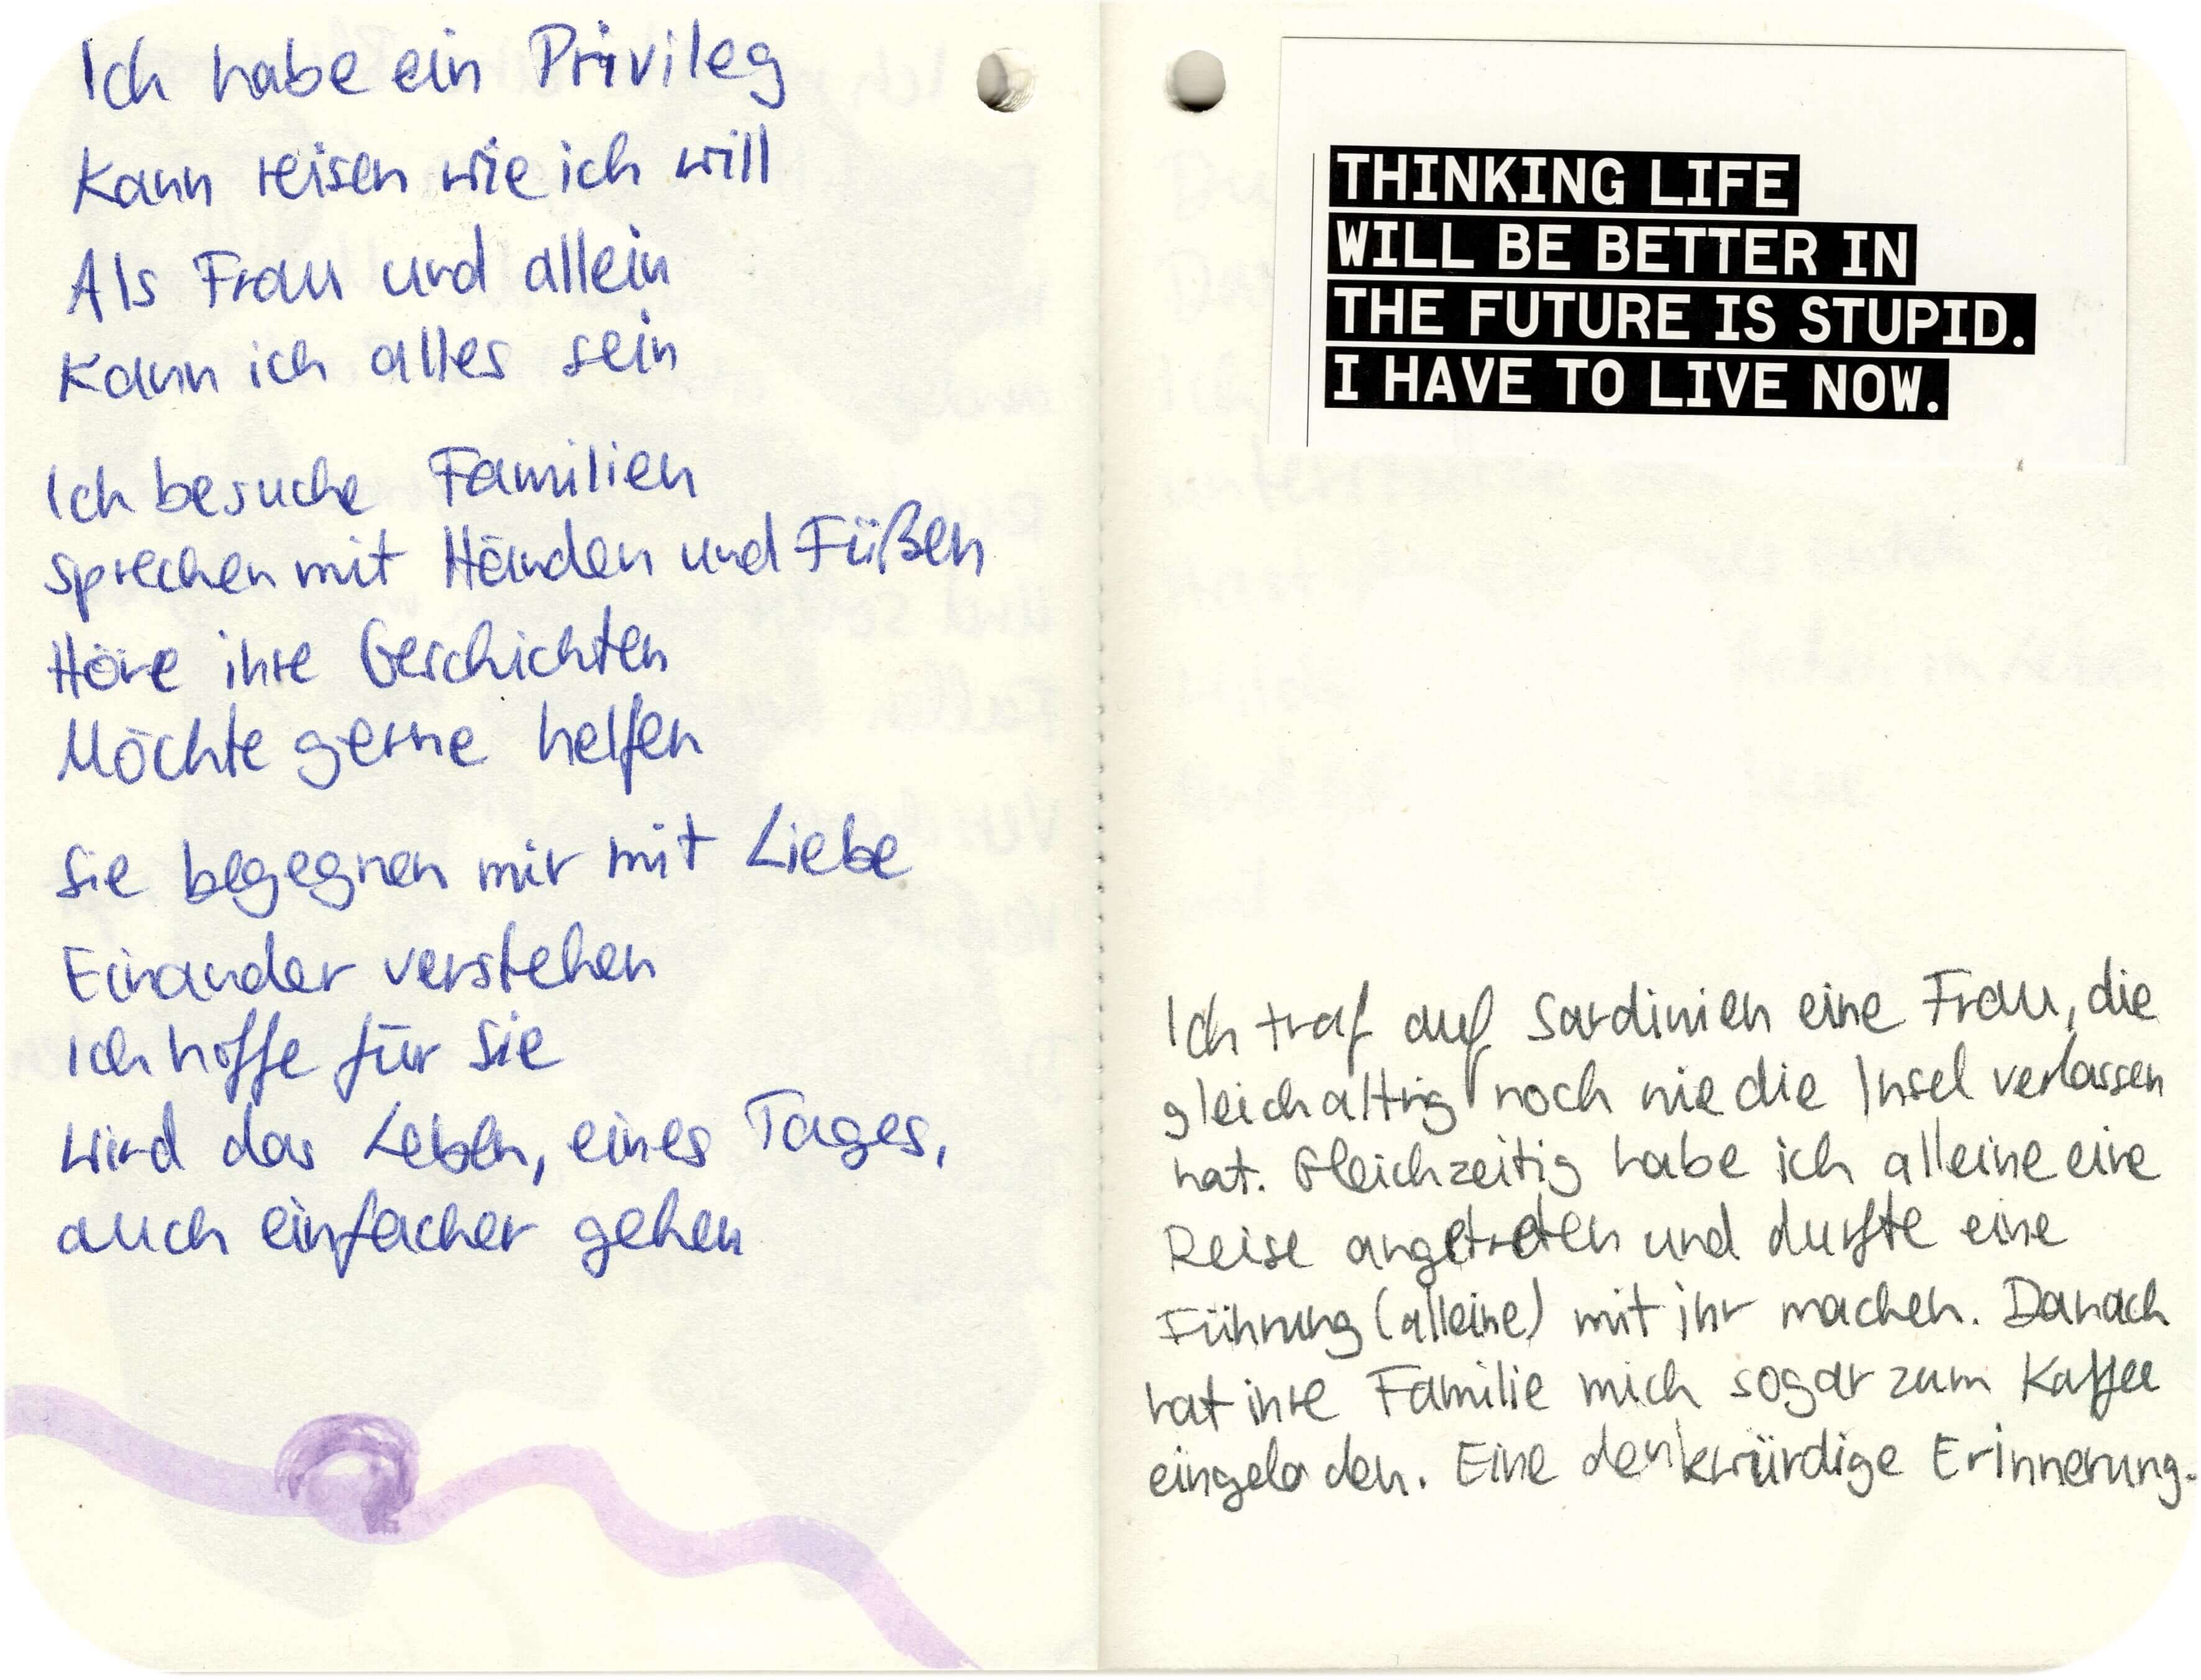 Ich habe ein Privileg
Kann reisen wie ich will
Als Frau und allein
Kann ich alles sein
Ich besuche Familien
sprechen mit Händen und Füßen
Höre ihre Geschichten
Möchte gerne helfen
Sie begegnen mir mit Liebe
Einander verstehen
Ich hoffe für sie
Wird das Leben, eines Tages,
auch einfacher gehen
THINKING LIFE
WILL BE BETTER IN
THE FUTURE IS STUPID.
I HAVE TO LIVE NOW.
Ich traf auf Sardinien eine Frau, die
gleichaltrig noch nie die Insel verlassen
hat. Gleichzeitig habe ich alleine eine
Reise angetreten und durfte eine
Führung (alleine) mit ihr machen. Danach
hat ihre Familie mich sogar zum Kaffee
eingeladen. Eine denkwürdige Erinnerung.